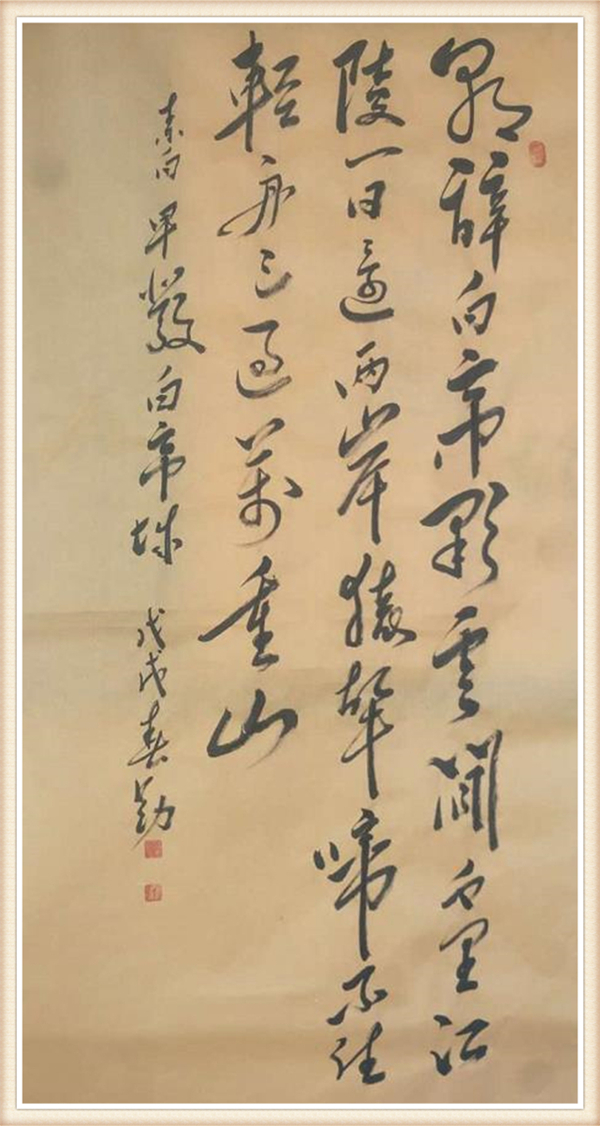 朝辭白帝彩雲間千里江
陵一日還兩岸猿聲啼不住
輕舟已過萬重山
李白早發白帝城 戊戌春